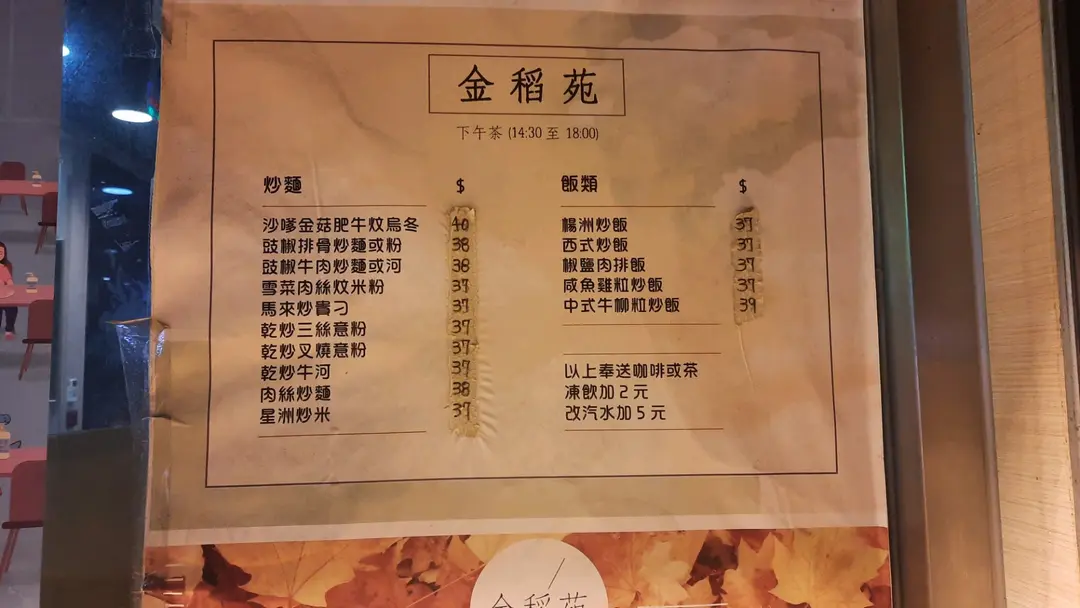 金稻苑
下午茶 (14:30 至 18:00)
炒麵 $
沙嗲金菇肥牛炆烏冬 40
豉椒排骨炒麵或粉 38
豉椒牛肉炒麵或河 38
雪菜肉絲炆米粉 37
馬來炒貴刁 37
乾炒三絲意粉 37
乾炒叉燒意粉 37
乾炒牛河 37
肉絲炒麵 38
星洲炒米 37
飯類 $
楊洲炒飯 37
西式炒飯 37
椒鹽肉排飯 37
咸魚雞粒炒飯 37
中式牛柳粒炒飯 39
以上奉送咖啡或茶
凍飲加 2 元
改汽水加 5 元
金稻苑